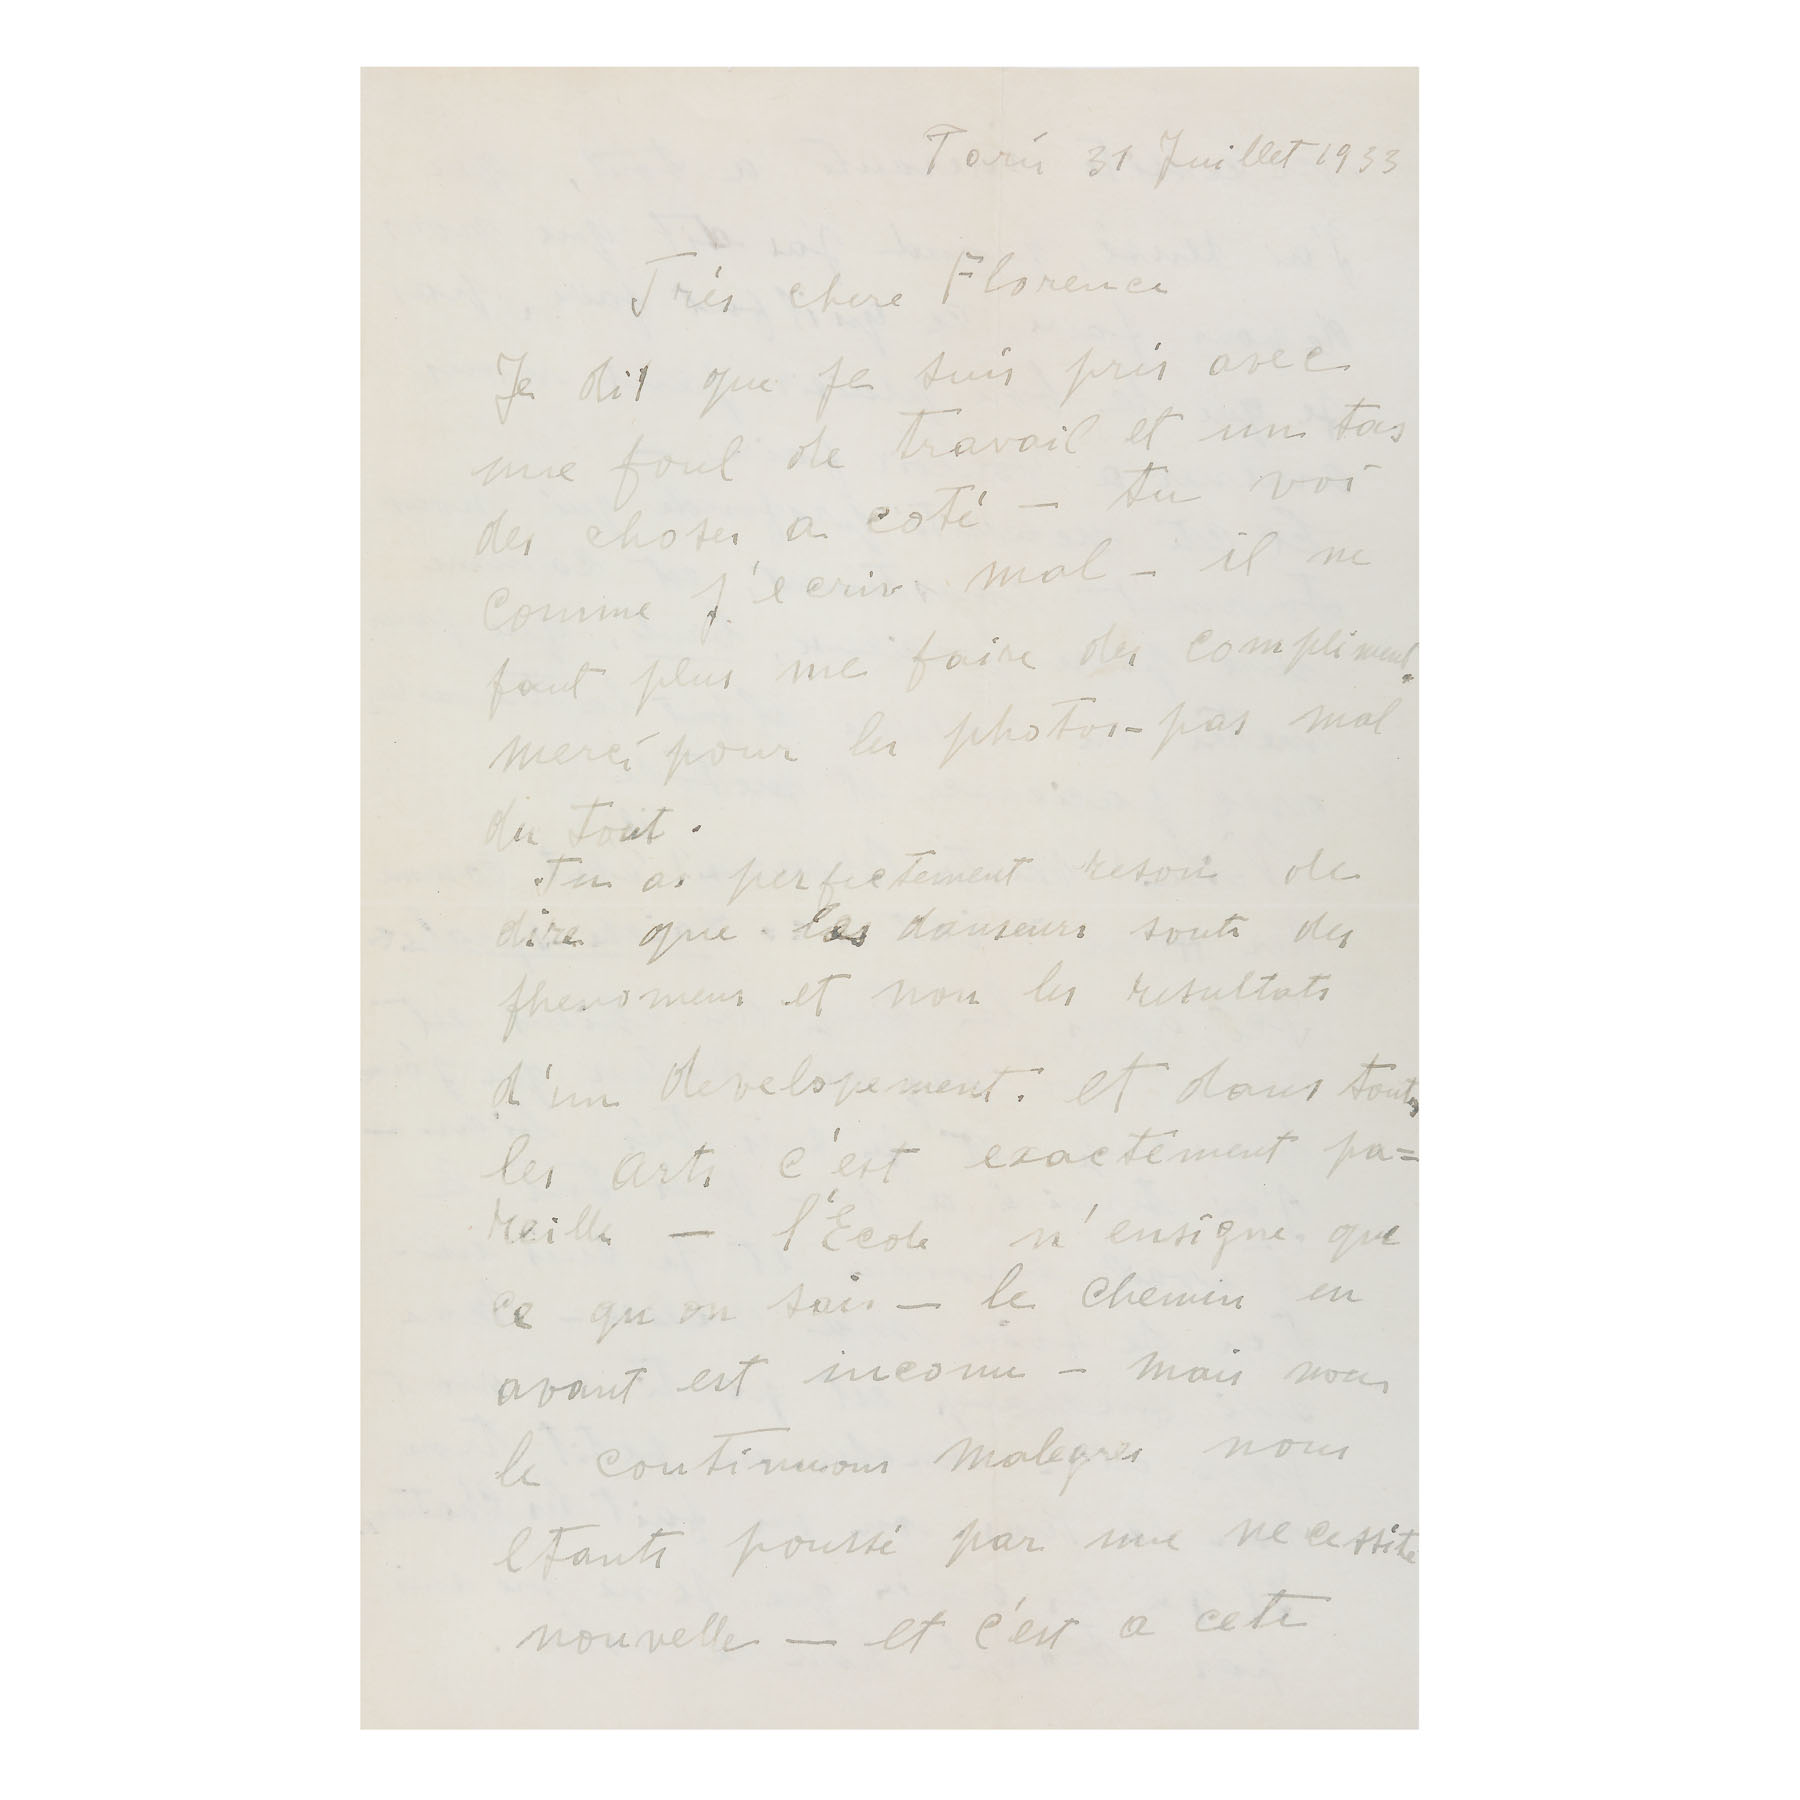 Paris 31 Juillet 1933
Trés chere Florence
Je dit que je suis pris avec
une foul de travail et un tas
des choses a coté — tu voi
comme j'ecriv mal — il ne
faut plus me faire des compliment.
merci pour les photos — pas mal
du tout.
Tu as perfectement reson de
dire que les danseurs sonts des
phenomens et non les resultats
d'un developement. et dans touts
les arts c'est exactement pa=
reille — l'École n'ensigne que
ce qu on sais — le chemin en
avant est inconu — mais nous
le continuons malegres nous
etants poussé par une necessité
nouvelle — et c'est a cete